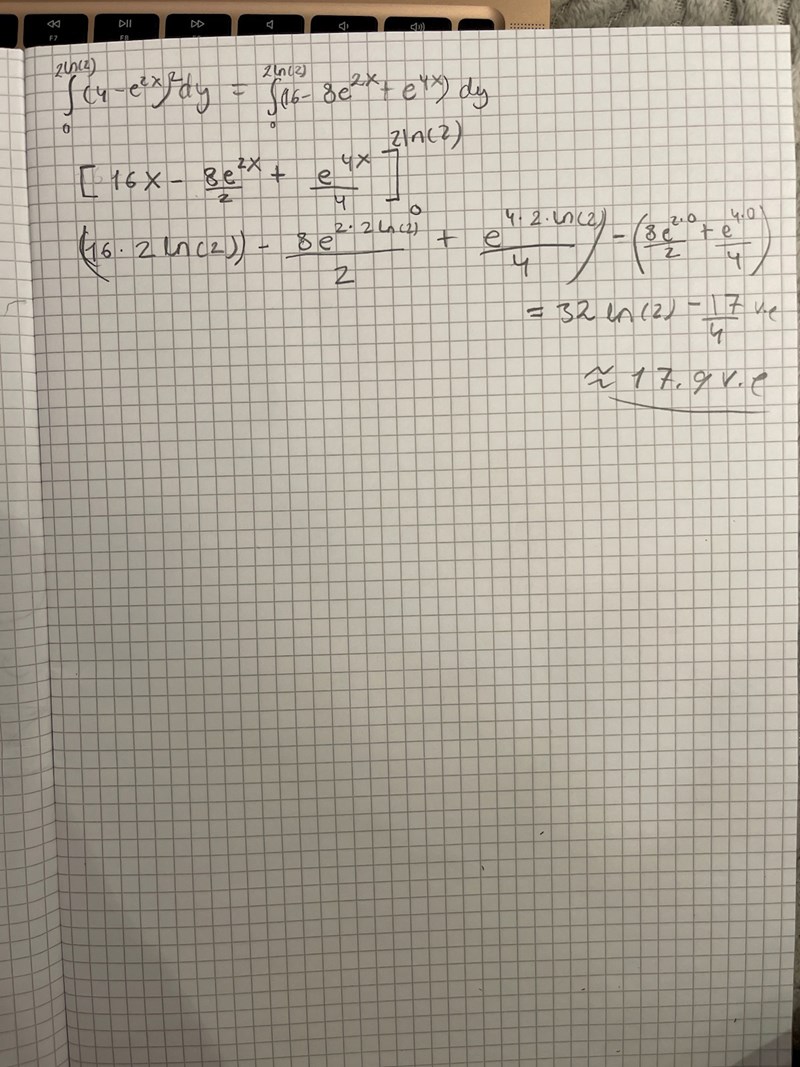 F7 F8
2ln(2) 2ln(2)
∫(4-e^2x)^2 dy = ∫(16-8e^2x + e^4x) dy
0 0
[16x - 8e^2x/2 + e^4x/4]_0^2ln(2)
(16·2ln(2)) - 8e^2·2ln(2)/2 + e^4·2·ln(2)/4) - (8e^2·0/2 + e^4·0/4)
= 32 ln(2) - 17/4 v.e
≈ 17.9 v.e